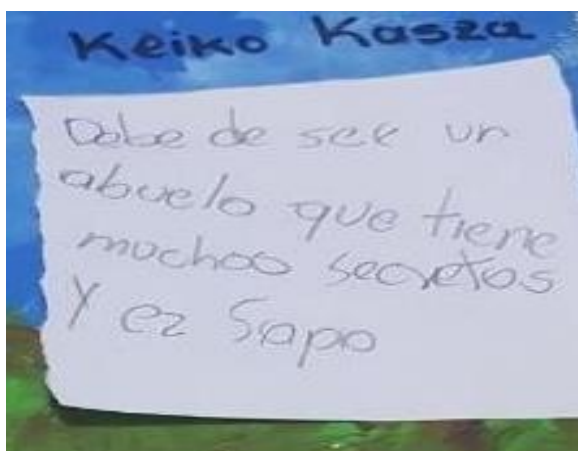 Keiko Kasza
Debe de ser un
abuelo que tiene
muchos secretos
Y ez Sapo